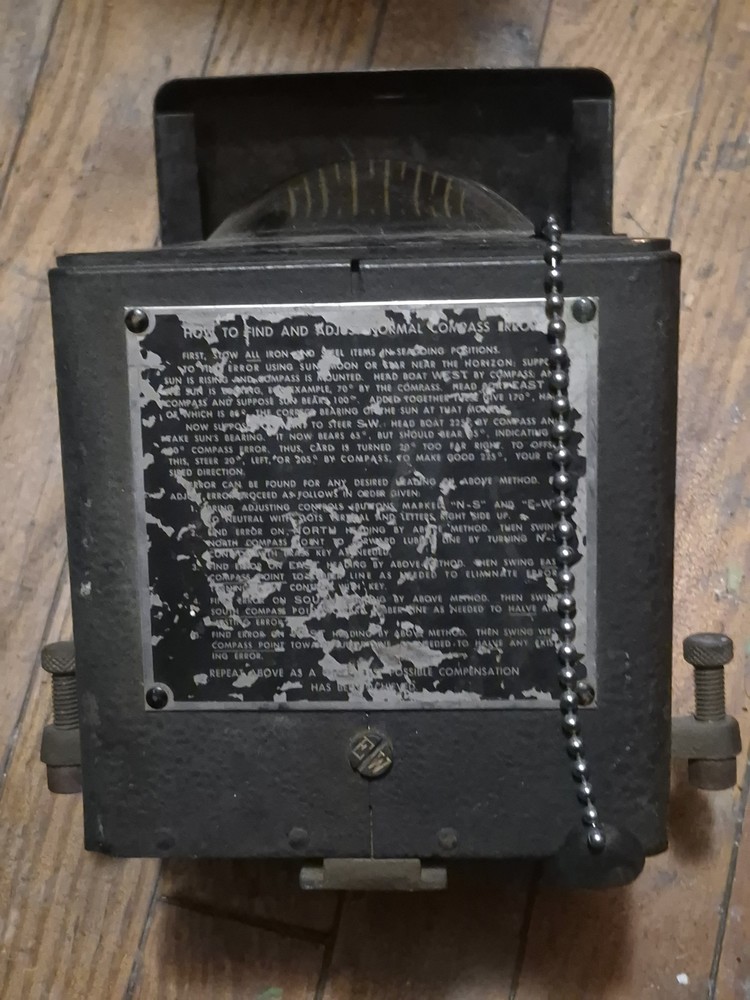 HOW TO FIND AND ADJUST NORMAL COMPASS ERROR
FIRST, STOW ALL IRON AND STEEL ITEMS IN SEAGOING POSITIONS.
TO FIND ERROR USING SUN, MOON OR STAR NEAR THE HORIZON: SUPPOSE
SUN IS RISING AND COMPASS IS MOUNTED. HEAD BOAT WEST BY COMPASS, AND
SUN IS BEARING, FOR EXAMPLE, 70° BY THE COMPASS. HEAD BOAT EAST
COMPASS AND SUPPOSE SUN BEARS 100°. ADDED TOGETHER THESE GIVE 170°, HALF
OF WHICH IS 85°, THE CORRECT BEARING OF THE SUN AT THAT MOMENT.
NOW SUPPOSE TO STEER S.W. HEAD BOAT 225° BY COMPASS AND
TAKE SUN'S BEARING. IT NOW BEARS 65°, BUT SHOULD BEAR 85°, INDICATING
20° COMPASS ERROR. THUS, CARD IS TURNED 20° TOO FAR RIGHT. TO OFFSET
THIS, STEER 20° LEFT, OR 205° BY COMPASS, TO MAKE GOOD 225°, YOUR
SIRED DIRECTION.
ERROR CAN BE FOUND FOR ANY DESIRED HEADING BY ABOVE METHOD.
ADJUST ERROR PROCEED AS FOLLOWS IN ORDER GIVEN:
1. BRING ADJUSTING CONTROLS (BUTTONS MARKED "N-S" AND "E-W"
TO NEUTRAL WITH DOTS VERTICAL AND LETTERS RIGHT SIDE UP.
FIND ERROR ON NORTH HEADING BY ABOVE METHOD. THEN SWING
NORTH COMPASS POINT TO FORWARD LUBBER LINE BY TURNING N-S
CONTROL WITH BRASS KEY AS NEEDED.
FIND ERROR ON EAST HEADING BY ABOVE METHOD. THEN SWING EAST
COMPASS POINT TO LINE AS NEEDED TO ELIMINATE ERROR
CONTROL WITH KEY.
FIND ERROR ON SOUTH HEADING BY ABOVE METHOD. THEN SWING
SOUTH COMPASS POINT LUBBER LINE AS NEEDED TO HALVE
ERROR
FIND ERROR ON HEADING BY ABOVE METHOD. THEN SWING WEST
COMPASS POINT TOWARD LUBBER LINE NEEDED TO HALVE ANY EXIST-
ING ERROR.
REPEAT ABOVE AS A POSSIBLE COMPENSATION
HAS BEEN ACHIEVED
E/W